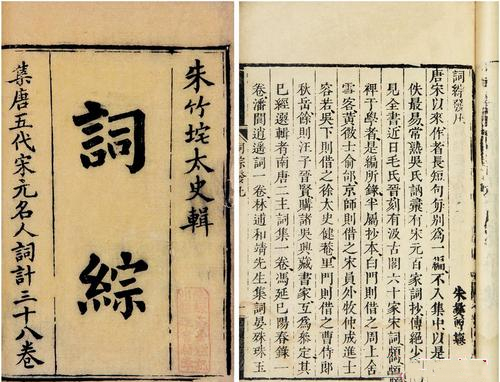 朱竹垞太史輯
詞綜
唐五代宋元名人詞計三十八卷
詞綜發凡
朱彝尊
唐宋以來作者長短句每別為一編不入集中以是
佚最易常熟吳氏訥彙有宋元百家詞抄傳絕少
見全書近日毛氏晉刻有汲古閣六十家宋詞頗
裨于學者是編所錄半屬抄本白門則借之周上舍
雪客黃徵士俞邰京師則借之宋員外牧仲成進士
容若吳下則借之徐太史健菴里門則借之曹侍郎
秋岳餘則汪子晉賢購諸吳興藏書家互為參定其
已經選輯者南唐二主詞集一卷馮延巳陽春錄一
卷潘閬逍遙詞一卷林逋和靖先生集詞晏殊珠玉